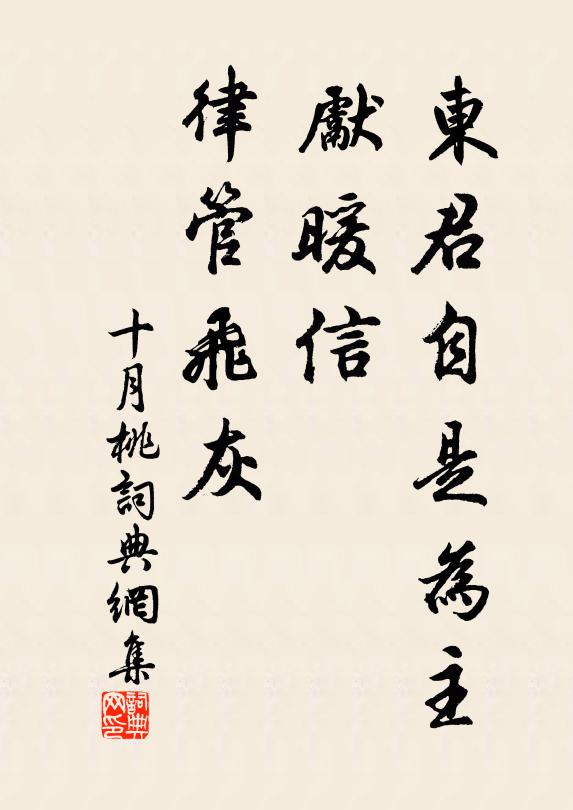 東君自是為主
獻暖信
律管飛灰
十月桃詞典網集
詞典網印